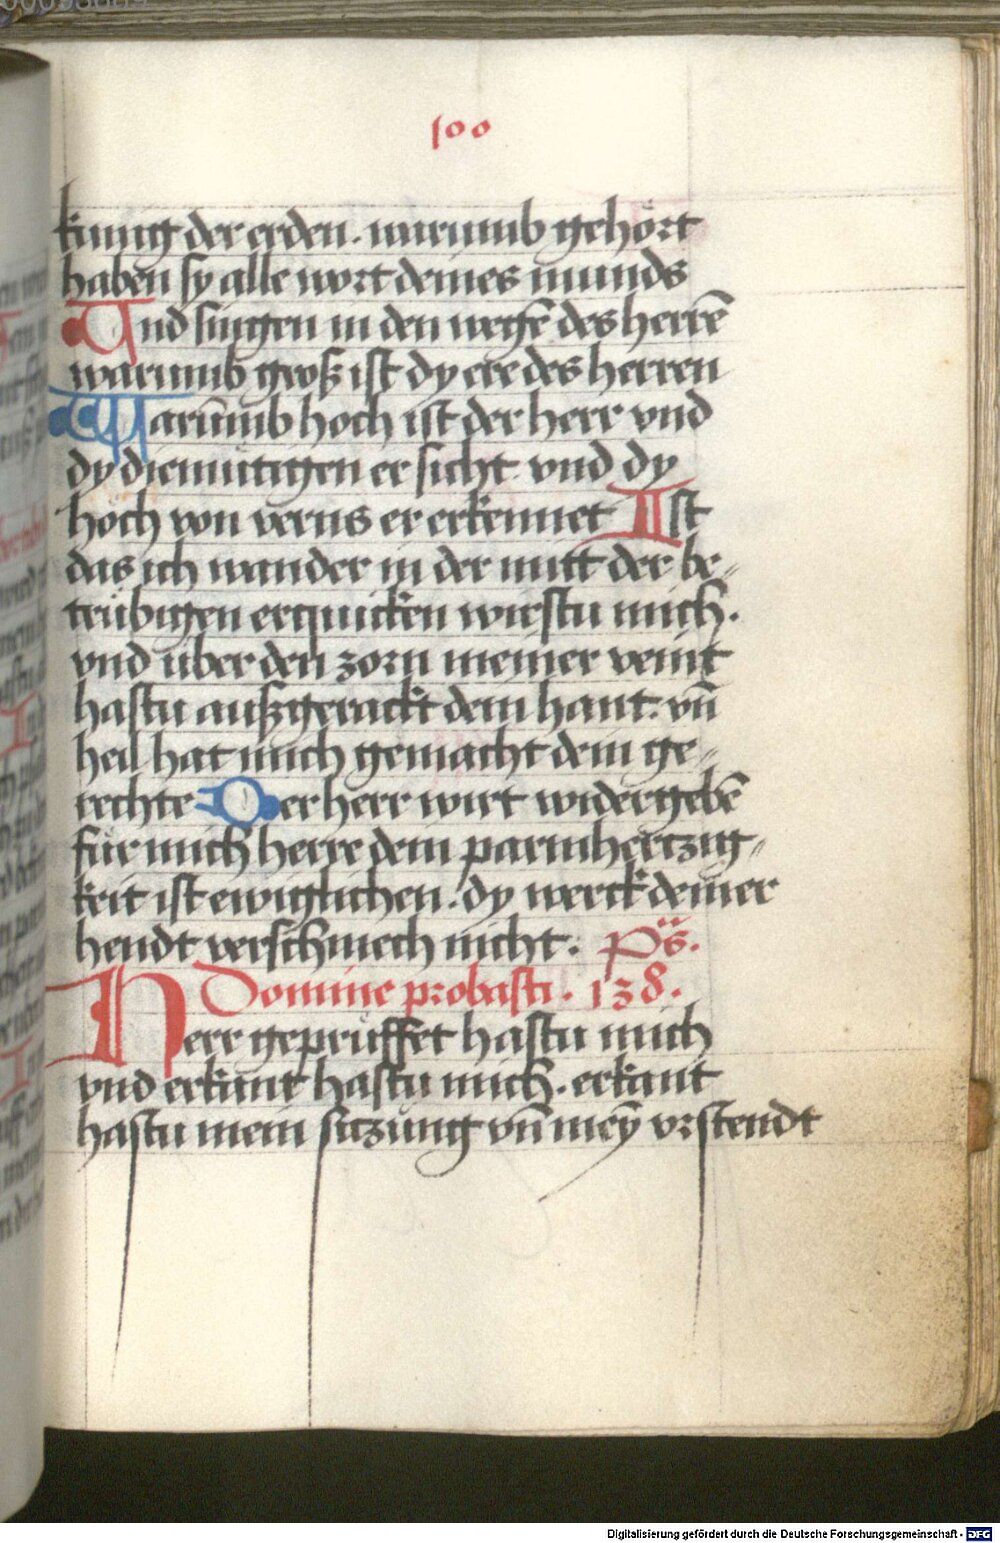 100
kunig der erden. warumb gehört
haben sy alle wort deines munds
Und singen in den wegē des herrē
warumb groß ist dy ere des herren
Warūmb hoch ist der herr vnd
dy diemütigen er sicht. vnd dy
hoch von verns er erkennet Ist
das ich wander in der mitt der be-
trübigen erquicken wirstu mich.
vnd über den zorn meiner veint
hastu außgerackt dein hant. vn̄
heil hat mich gemacht dein ge-
rechte Der herr wirt widergebē
für mich herre dein parmhertzig-
keit ist ewiglichen. dy werck deiner
hendt verschmech nicht. Ps.
Domine probasti. 138.
Herr geprüffet hastu mich
vnd erkant hastu mich. erkant
hastu mein siczung vn̄ meȳ vrstendt
Digitalisierung gefördert durch die Deutsche Forschungsgemeinschaft - DFG